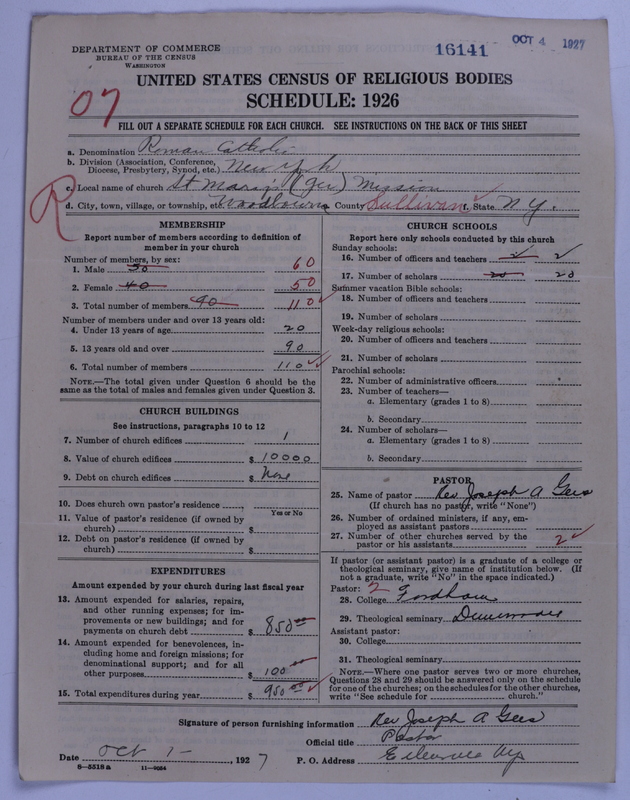 DEPARTMENT OF COMMERCE
BUREAU OF THE CENSUS
WASHINGTON
16141
OCT 4 1927
UNITED STATES CENSUS OF RELIGIOUS BODIES
SCHEDULE: 1926
07
FILL OUT A SEPARATE SCHEDULE FOR EACH CHURCH. SEE INSTRUCTIONS ON THE BACK OF THIS SHEET
R
a. Denomination Roman Catholic
b. Division (Association, Conference, Diocese, Presbytery, Synod, etc.) New York
c. Local name of church St Mary's Mission
d. City, town, village, or township, etc. Woodbourne County Sullivan State N.Y.
MEMBERSHIP
Report number of members according to definition of
member in your church
Number of members, by sex:
1. Male 50 60
2. Female 40 50
3. Total number of members 90 110
Number of members under and over 13 years old:
4. Under 13 years of age 20
5. 13 years old and over 90
6. Total number of members 110
NOTE.—The total given under Question 6 should be the
same as the total of males and females given under Question 3.
CHURCH BUILDINGS
See instructions, paragraphs 10 to 12
7. Number of church edifices 1
8. Value of church edifices $ 10000
9. Debt on church edifices $ None
10. Does church own pastor's residence
Yes or No
11. Value of pastor's residence (if owned by
church) $
12. Debt on pastor's residence (if owned by
church) $
EXPENDITURES
Amount expended by your church during last fiscal year
13. Amount expended for salaries, repairs,
and other running expenses; for im-
provements or new buildings; and for
payments on church debt $ 850.00
14. Amount expended for benevolences, in-
cluding home and foreign missions; for
denominational support; and for all
other purposes $ 100.00
15. Total expenditures during year $ 950.00
CHURCH SCHOOLS
Report here only schools conducted by this church
Sunday schools:
16. Number of officers and teachers 2 2
17. Number of scholars 20 20
Summer vacation Bible schools:
18. Number of officers and teachers
19. Number of scholars
Week-day religious schools:
20. Number of officers and teachers
21. Number of scholars
Parochial schools:
22. Number of administrative officers
23. Number of teachers—
a. Elementary (grades 1 to 8)
b. Secondary
24. Number of scholars—
a. Elementary (grades 1 to 8)
b. Secondary
PASTOR
25. Name of pastor Rev Joseph A Geis
(If church has no pastor, write "None")
26. Number of ordained ministers, if any, em-
ployed as assistant pastors
27. Number of other churches served by the
pastor or his assistants 2
If pastor (or assistant pastor) is a graduate of a college or
theological seminary, give name of institution below. (If
not a graduate, write "No" in the space indicated.)
Pastor: 2
28. College Fordham
29. Theological seminary Dunwoodie
Assistant pastor:
30. College
31. Theological seminary
NOTE.—Where one pastor serves two or more churches,
Questions 28 and 29 should be answered only on the schedule
for one of the churches; on the schedules for the other churches,
write "See schedule for church."
Signature of person furnishing information Rev Joseph A Geis
Official title Pastor
Date Oct 1-, 1927 P. O. Address Ellenville NY
8—5519 a 11—9034